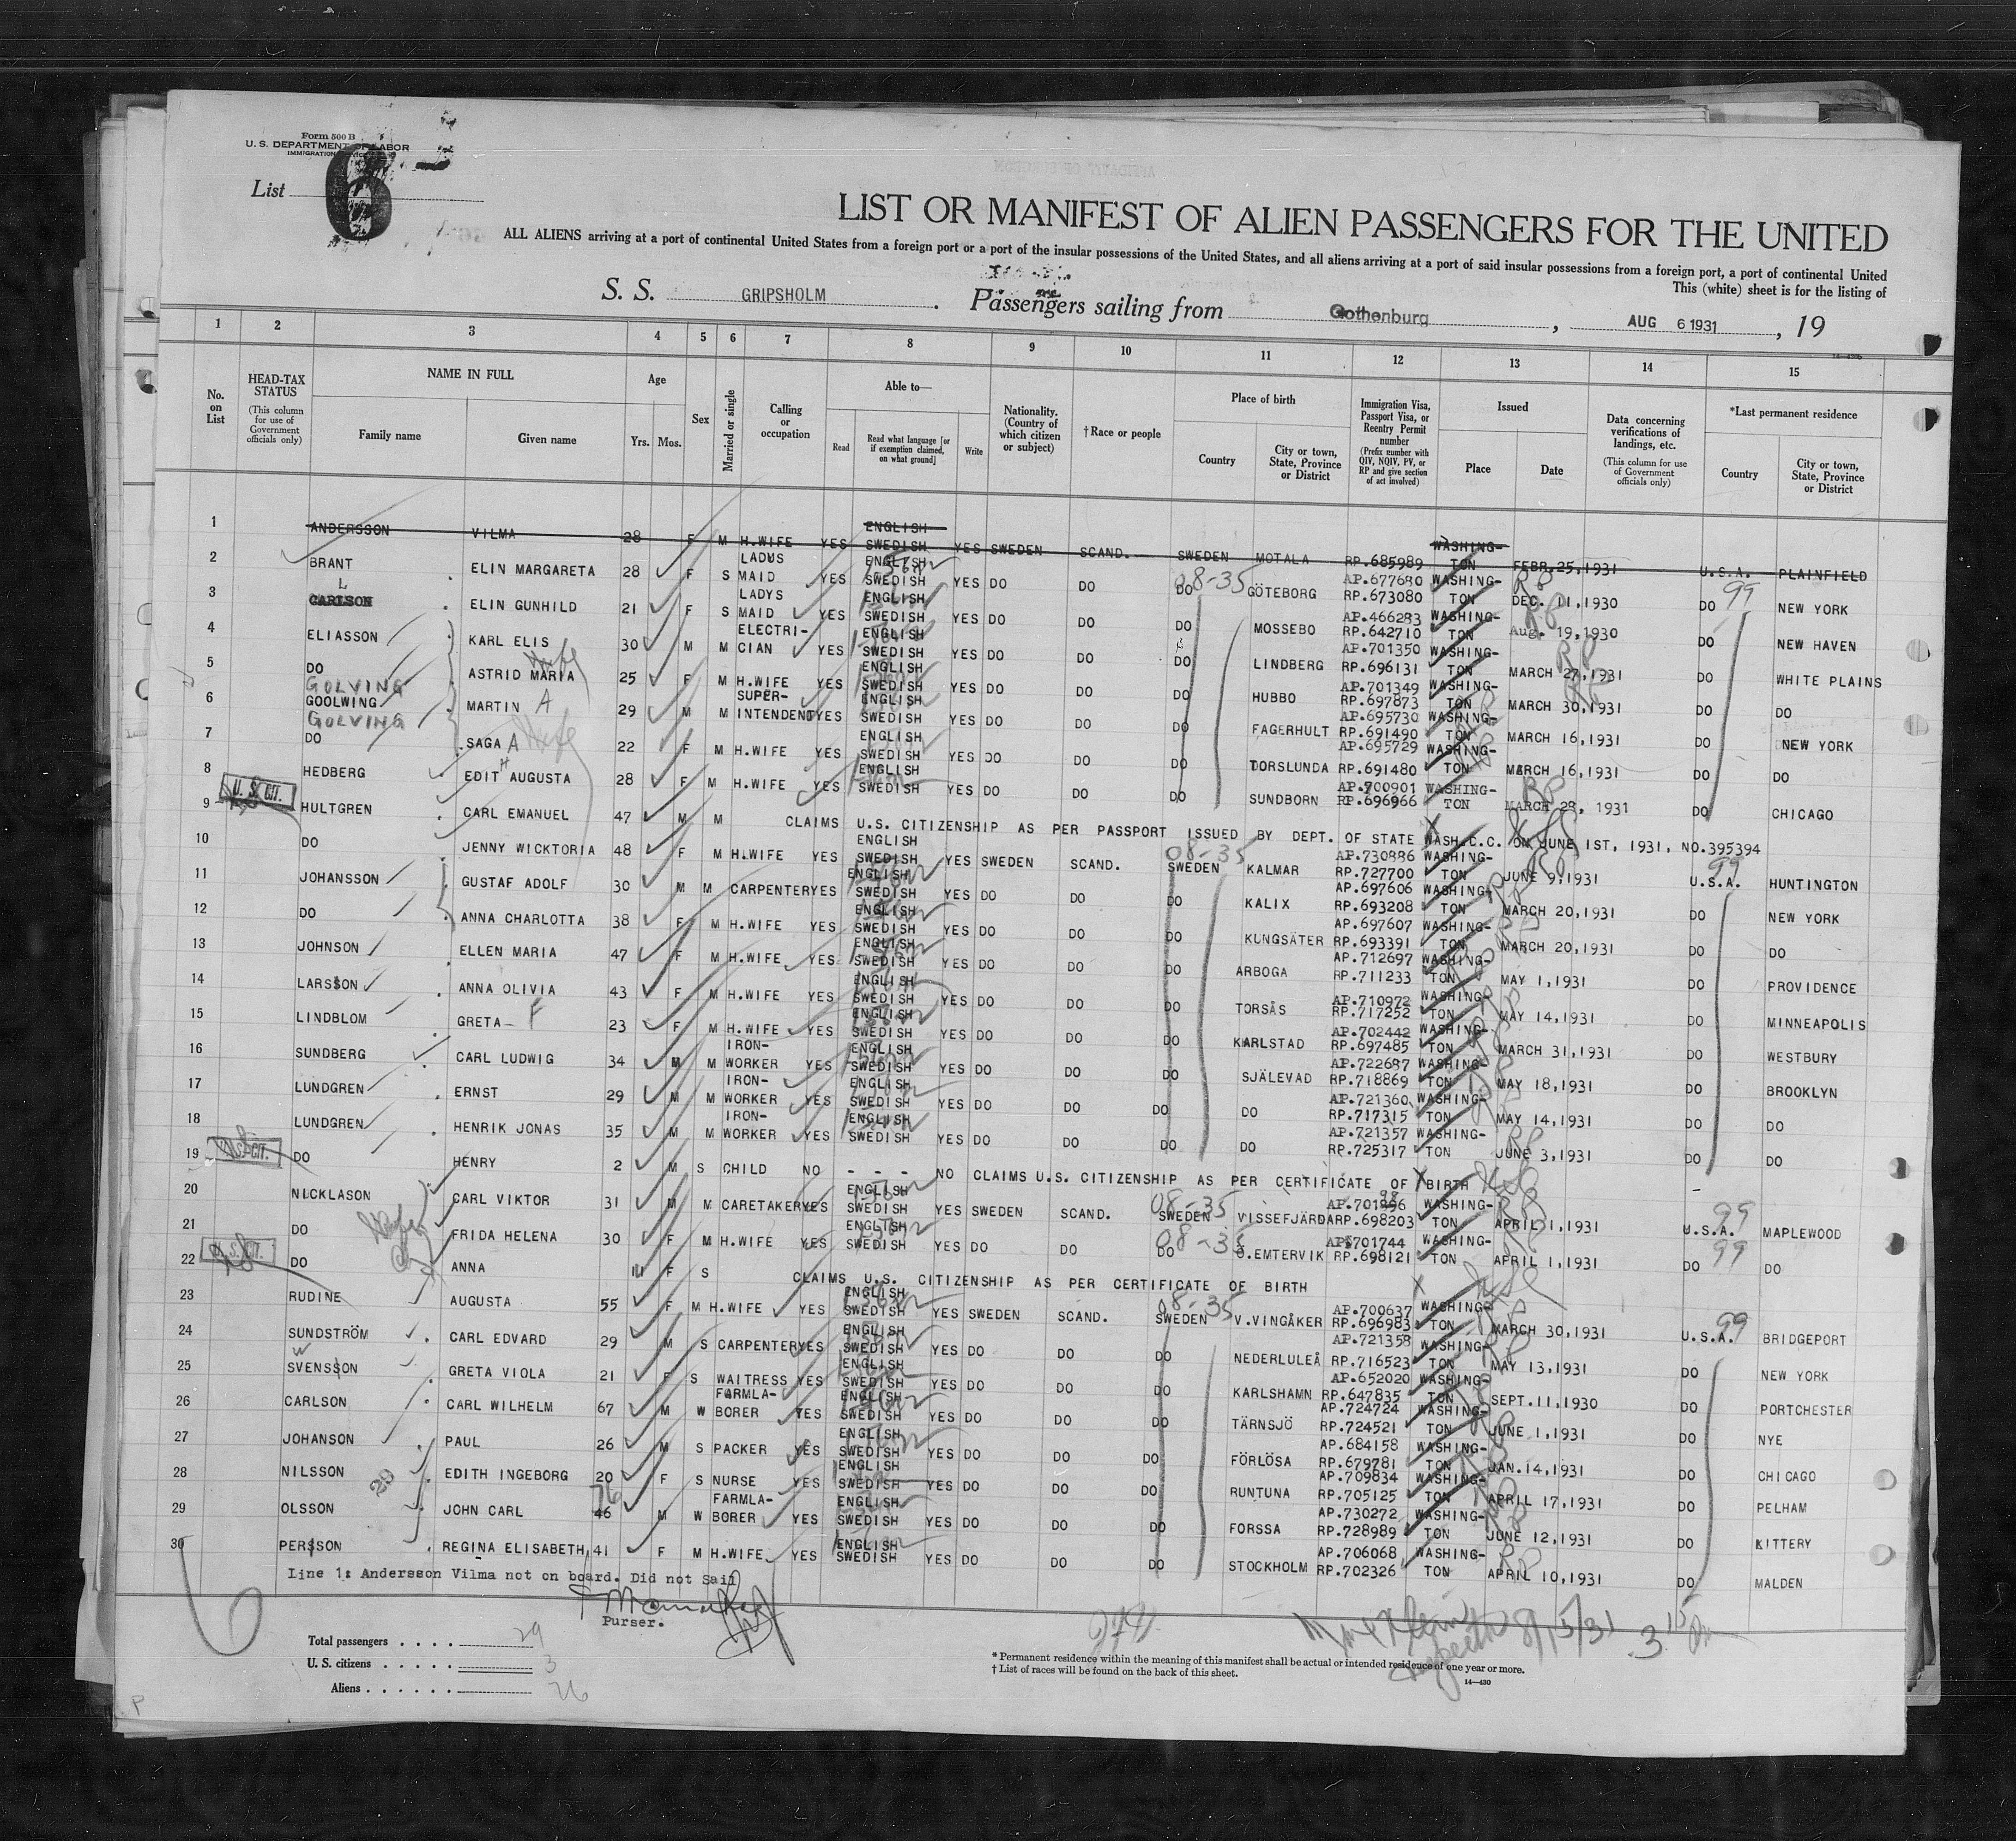 Form 500 B
U. S. DEPARTMENT OF LABOR
List 6
LIST OR MANIFEST OF ALIEN PASSENGERS FOR THE UNITED
ALL ALIENS arriving at a port of continental United States from a foreign port or a port of the insular possessions of the United States, and all aliens arriving at a port of said insular possessions from a foreign port, a port of continental United
This (white) sheet is for the listing of
S. S. GRIPSHOLM. Passengers sailing from Gothenburg, AUG 6 1931, 19
1 2 3 4 5 6 7 8 9 10 11 12 13 14 15
No. on List
HEAD-TAX STATUS (This column for use of Government officials only)
NAME IN FULL
Family name
Given name
Age
Yrs. Mos.
Sex
Married or single
Calling or occupation
Able to—
Read
Read what language [or if exemption claimed, on what ground]
Write
Nationality. (Country of which citizen or subject)
†Race or people
Place of birth
Country
City or town, State, Province or District
Immigration Visa, Passport Visa, or Reentry Permit number (Prefix number with QIV, NQIV, PV, or RP and give section of act involved)
Issued
Place
Date
Data concerning verifications of landings, etc. (This column for use of Government officials only)
*Last permanent residence
Country
City or town, State, Province or District
1 ANDERSSON VILMA 28 F M H.WIFE YES ENGLISH SWEDISH YES SWEDEN SCAND. SWEDEN MOTALA RP.685989 WASHING-TON FEBR.25,1931 U.S.A. PLAINFIELD
2 BRANT ELIN MARGARETA 28 F S LADYS MAID YES ENGLISH SWEDISH YES DO DO DO 08-35 GÖTEBORG AP.677680 RP.673080 WASHING-TON DEC. 11,1930 DO 99 NEW YORK
3 CARLSON ELIN GUNHILD 21 F S LADYS MAID YES ENGLISH SWEDISH YES DO DO DO MOSSEBO AP.466283 RP.642710 WASHING-TON Aug. 19,1930 DO NEW HAVEN
4 ELIASSON KARL ELIS 30 M M ELECTRI-CIAN YES ENGLISH SWEDISH YES DO DO DO LINDBERG AP.701350 RP.696131 WASHING-TON MARCH 27,1931 DO WHITE PLAINS
5 DO ASTRID MARIA 25 F M H.WIFE YES ENGLISH SWEDISH YES DO DO DO HUBBO AP.701349 RP.697873 WASHING-TON MARCH 30,1931 DO DO
6 GOLVING GOOLWING MARTIN A 29 M M SUPER-INTENDENT YES ENGLISH SWEDISH YES DO DO DO FAGERHULT AP.695730 RP.691490 WASHING-TON MARCH 16,1931 DO NEW YORK
7 GOLVING DO SAGA A 22 F M H.WIFE YES ENGLISH SWEDISH YES DO DO DO TORSLUNDA AP.695729 RP.691480 WASHING-TON MARCH 16,1931 DO DO
8 HEDBERG EDIT H AUGUSTA 28 F M H.WIFE YES ENGLISH SWEDISH YES DO DO DO SUNDBORN AP.700901 RP.696966 WASHING-TON MARCH 28, 1931 DO CHICAGO
U. S. CIT.
9 HULTGREN CARL EMANUEL 47 M M CLAIMS U.S. CITIZENSHIP AS PER PASSPORT ISSUED BY DEPT. OF STATE WASH.C.C. ON JUNE 1ST, 1931, NO.395394
10 DO JENNY WICKTORIA 48 F M H.WIFE YES ENGLISH SWEDISH YES SWEDEN SCAND. 08-35 SWEDEN KALMAR AP.730886 RP.727700 WASHING-TON JUNE 9,1931 U.S.A. 99 HUNTINGTON
11 JOHANSSON GUSTAF ADOLF 30 M M CARPENTER YES ENGLISH SWEDISH YES DO DO DO KALIX AP.697606 RP.693208 WASHING-TON MARCH 20,1931 DO NEW YORK
12 DO ANNA CHARLOTTA 38 F M H.WIFE YES ENGLISH SWEDISH YES DO DO DO KUNGSÄTER AP.697607 RP.693391 WASHING-TON MARCH 20,1931 DO DO
13 JOHNSON ELLEN MARIA 47 F M H.WIFE YES ENGLISH SWEDISH YES DO DO DO ARBOGA AP.712697 RP.711233 WASHING-TON MAY 1,1931 DO PROVIDENCE
14 LARSSON ANNA OLIVIA 43 F M H.WIFE YES ENGLISH SWEDISH YES DO DO DO TORSÅS AP.710972 RP.717252 WASHING-TON MAY 14,1931 DO MINNEAPOLIS
15 LINDBLOM GRETA F 23 F M H.WIFE YES ENGLISH SWEDISH YES DO DO DO KARLSTAD AP.702442 RP.697485 WASHING-TON MARCH 31,1931 DO WESTBURY
16 SUNDBERG CARL LUDWIG 34 M M IRON-WORKER YES ENGLISH SWEDISH YES DO DO DO SJÄLEVAD AP.722687 RP.718869 WASHING-TON MAY 18,1931 DO BROOKLYN
17 LUNDGREN ERNST 29 M M IRON-WORKER YES ENGLISH SWEDISH YES DO DO DO DO AP.721360 RP.717315 WASHING-TON MAY 14,1931 DO DO
18 LUNDGREN HENRIK JONAS 35 M M IRON-WORKER YES ENGLISH SWEDISH YES DO DO DO DO AP.721357 RP.725317 WASHING-TON JUNE 3,1931 DO DO
U. S. CIT.
19 DO HENRY 2 M S CHILD NO - - - NO CLAIMS U.S. CITIZENSHIP AS PER CERTIFICATE OF BIRTH
20 NICKLASON CARL VIKTOR 31 M M CARETAKER YES ENGLISH SWEDISH YES SWEDEN SCAND. 08-35 SWEDEN VISSEFJÄRDA RP.698203 WASHING-TON APRIL 1,1931 U.S.A. 99 MAPLEWOOD
21 DO FRIDA HELENA 30 F M H.WIFE YES ENGLISH SWEDISH YES DO DO DO 08-35 Ö.EMTERVIK AP.701744 RP.698121 WASHING-TON APRIL 1,1931 DO 99 DO
U. S. CIT.
22 DO ANNA F S CLAIMS U.S. CITIZENSHIP AS PER CERTIFICATE OF BIRTH
23 RUDINE AUGUSTA 55 F M H.WIFE YES ENGLISH SWEDISH YES SWEDEN SCAND. 08-35 SWEDEN V.VINGÅKER AP.700637 RP.696983 WASHING-TON MARCH 30,1931 U.S.A. 99 BRIDGEPORT
24 SUNDSTRÖM CARL EDVARD 29 M S CARPENTER YES ENGLISH SWEDISH YES DO DO DO NEDERLULEÅ AP.721358 RP.716523 WASHING-TON MAY 13,1931 DO NEW YORK
25 SVENSSON GRETA VIOLA 21 F S WAITRESS YES ENGLISH SWEDISH YES DO DO DO KARLSHAMN AP.652020 RP.647835 WASHING-TON SEPT.11,1930 DO PORTCHESTER
26 CARLSON CARL WILHELM 67 M W FARMLA-BORER YES ENGLISH SWEDISH YES DO DO DO TÄRNSJÖ AP.724724 RP.724521 WASHING-TON JUNE 1,1931 DO NYE
27 JOHANSON PAUL 26 M S PACKER YES ENGLISH SWEDISH YES DO DO DO FÖRLÖSA AP.684158 RP.679781 WASHING-TON JAN.14,1931 DO CHICAGO
28 NILSSON EDITH INGEBORG 20 F S NURSE YES ENGLISH SWEDISH YES DO DO DO RUNTUNA AP.709834 RP.705125 WASHING-TON APRIL 17,1931 DO PELHAM
29 OLSSON JOHN CARL 46 M W FARMLA-BORER YES ENGLISH SWEDISH YES DO DO DO FORSSA AP.730272 RP.728989 WASHING-TON JUNE 12,1931 DO KITTERY
30 PERSSON REGINA ELISABETH 41 F M H.WIFE YES ENGLISH SWEDISH YES DO DO DO STOCKHOLM AP.706068 RP.702326 WASHING-TON APRIL 10,1931 DO MALDEN
Line 1: Andersson Vilma not on board. Did not Sail
Purser.
Total passengers . . . . 29
U. S. citizens . . . . . 3
Aliens . . . . . . 26
8/15/31 3 15
* Permanent residence within the meaning of this manifest shall be actual or intended residence of one year or more.
† List of races will be found on the back of this sheet.
14—430